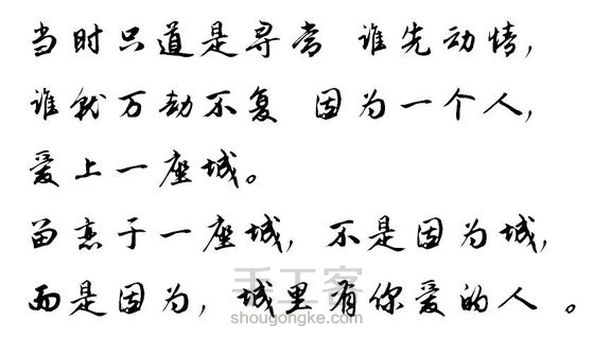 当时只道是寻常 谁先动情，
谁就万劫不复 因为一个人，
爱上一座城。
留恋于一座城，不是因为城，
而是因为，城里有你爱的人 。
手工客
shougongke.com